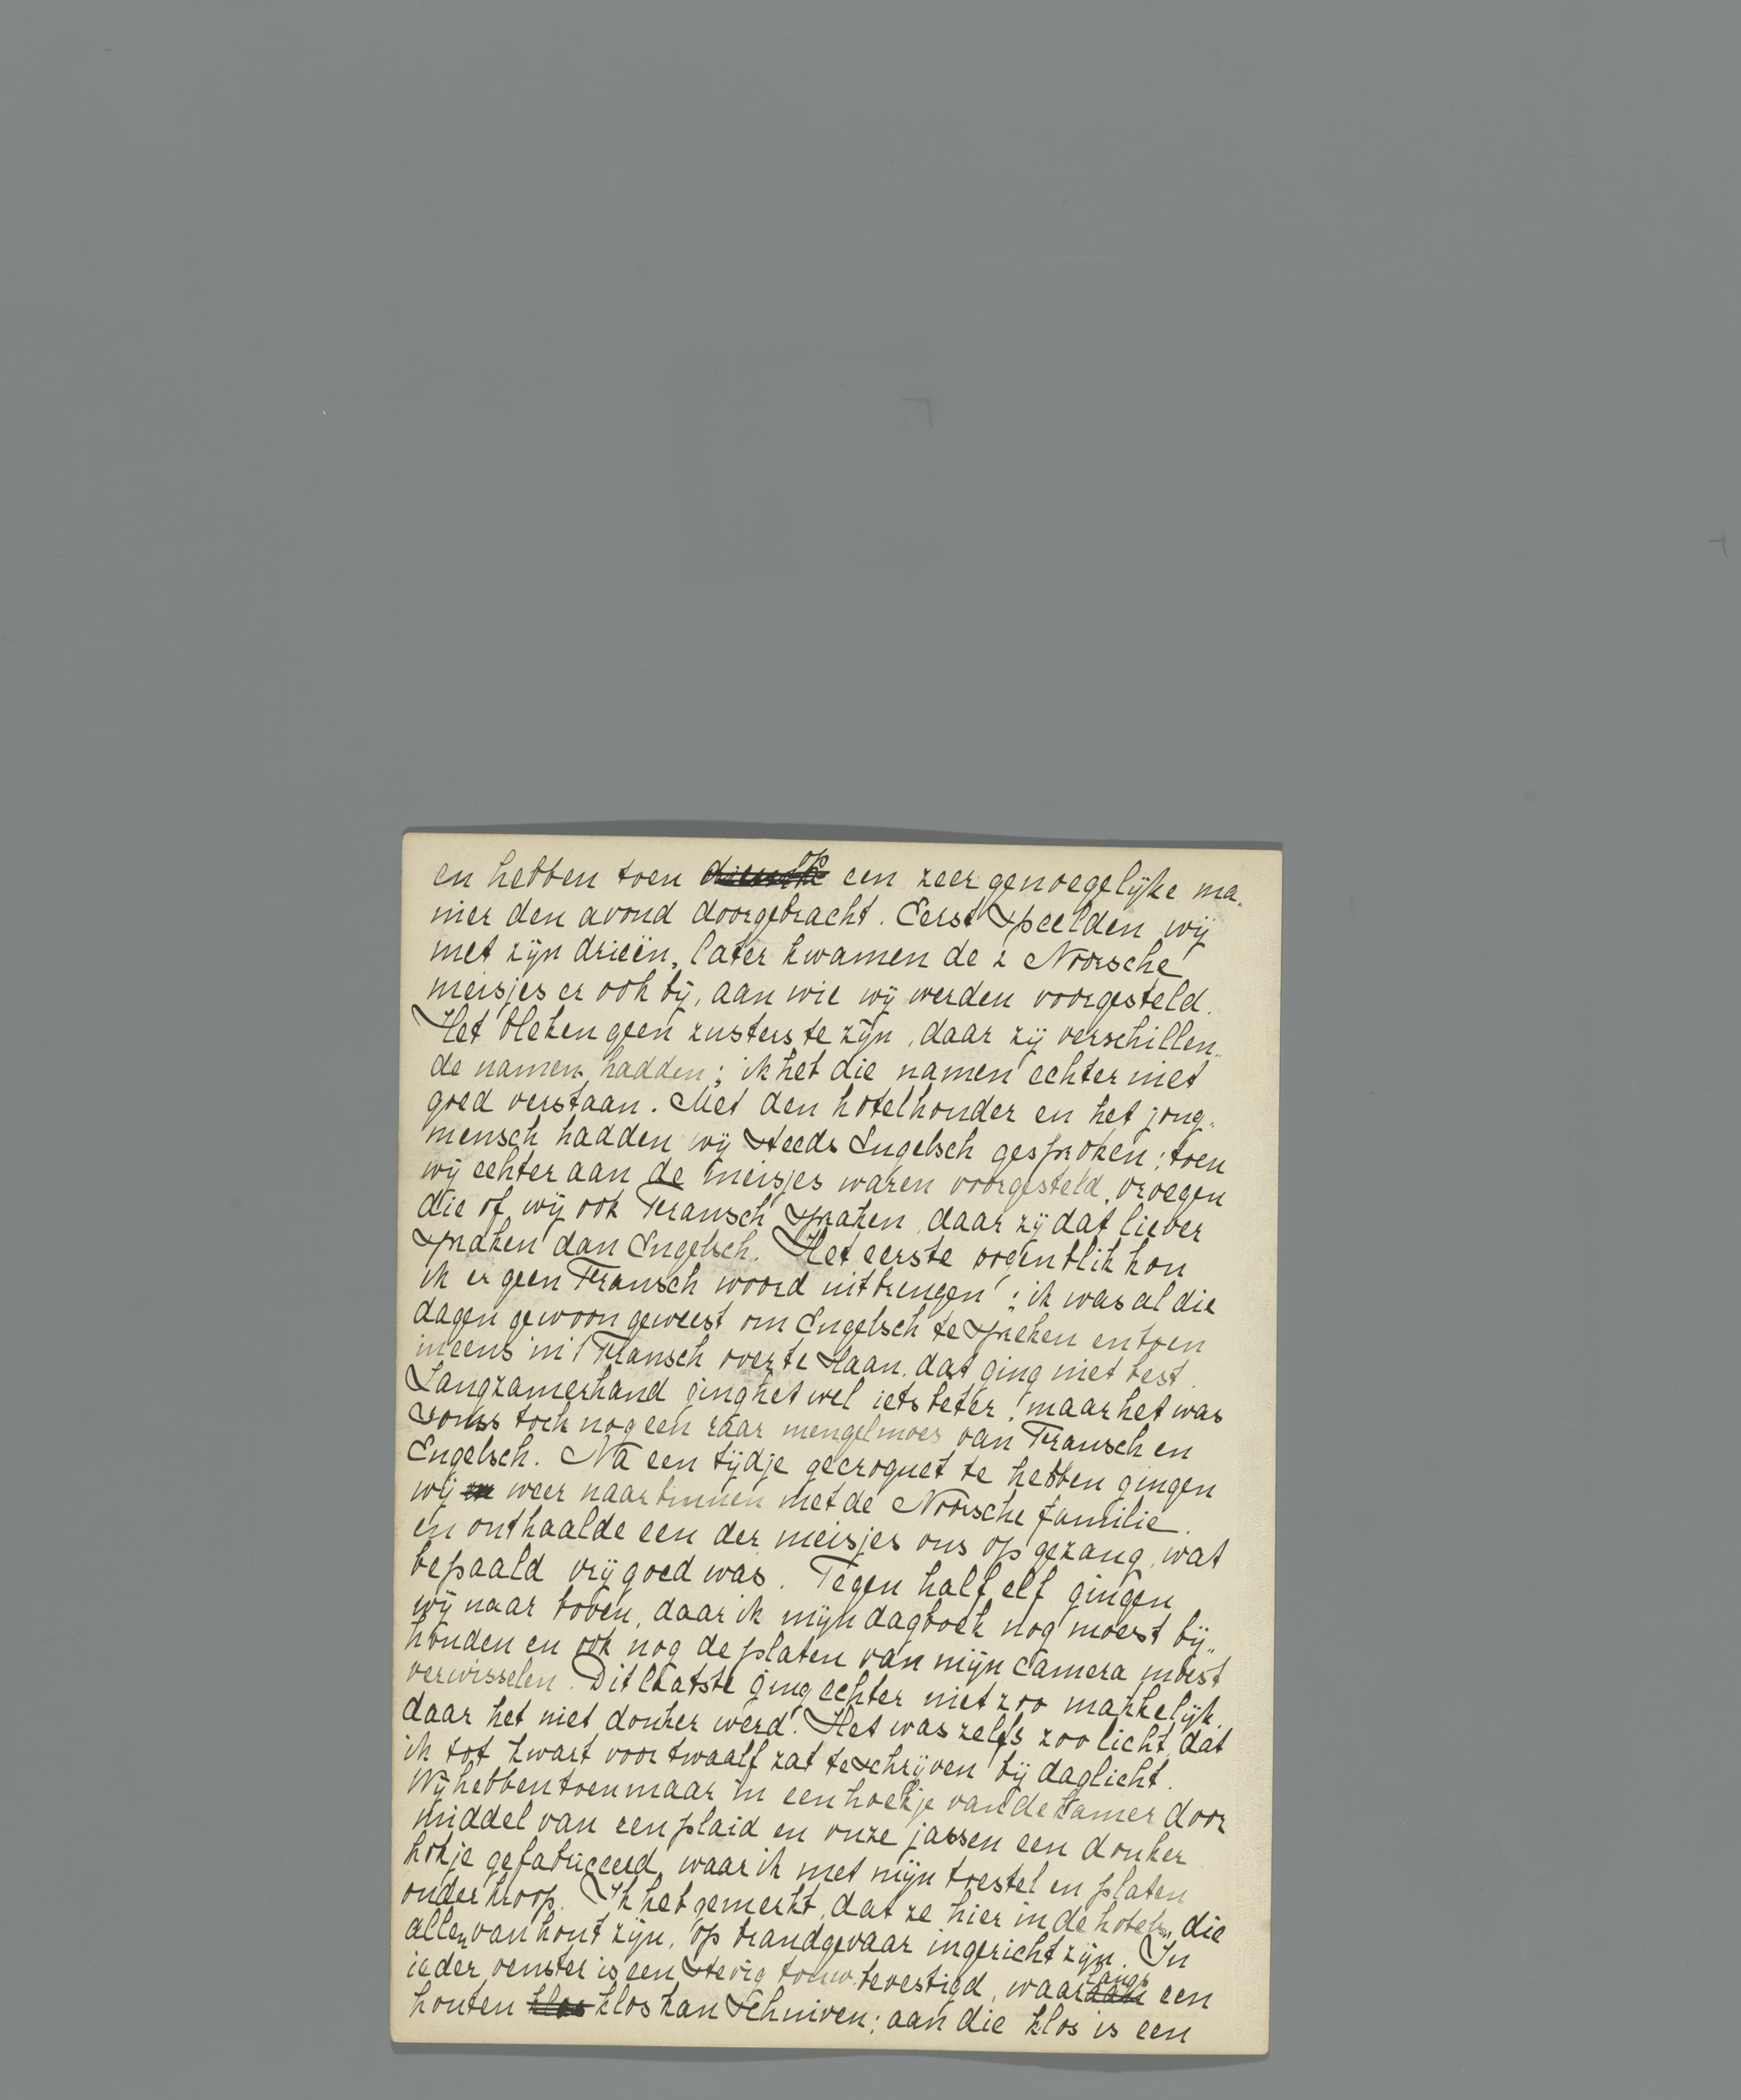 en hebben toen op een zeer genoegelijke ma-
nier den avond doorgebracht. Eerst speelden wij
met zijn drieën, later kwamen de 2 Noorsche
meisjes er ook bij, aan wie wij werden voorgesteld.
Het bleken geen zusters te zijn, daar zij verschillen-
de namen hadden; ik heb die namen echter niet
goed verstaan. Met den hotelhouder en het jong-
mensch hadden wij steeds Engelsch gesproken; toen
wij echter aan de meisjes waren voorgesteld, vroegen
die of wij ook Fransch spraken, daar zij dat liever
spraken dan Engelsch. Het eerste oogenblik kon
ik er geen Fransch woord uitbrengen; ik was al die
dagen gewoon geweest om Engelsch te spreken en toen
ineens in 't Fransch over te slaan, dat ging niet best.
Langzamerhand ging het wel iets beter, maar het was
soms toch nog een raar mengelmoes van Fransch en
Engelsch. Na een tijdje gecroquet te hebben gingen
wij weer naar binnen met de Noorsche familie
en onthaalde een der meisjes ons op gezang, wat
bepaald vrij goed was. Tegen half elf gingen
wij naar boven, daar ik mijn dagboek nog moest bij-
houden en ook nog de platen van mijn camera moest
verwisselen. Dit laatste ging echter niet zoo makkelijk,
daar het niet donker werd. Het was zelfs zoo licht, dat
ik tot kwart voor twaalf zat te schrijven bij daglicht.
Wij hebben toen maar in een hoekje van de kamer door
middel van een plaid en onze jassen een donker
hokje gefabriceerd, waar ik met mijn toestel en platen
onder kroop. Ik heb gemerkt, dat ze hier in de hotels, die
allen van hout zijn, op brandgevaar ingericht zijn. In
ieder venster is een stevig touw bevestigd, waarlangs een
houten klos klos kan schuiven; aan die klos is een